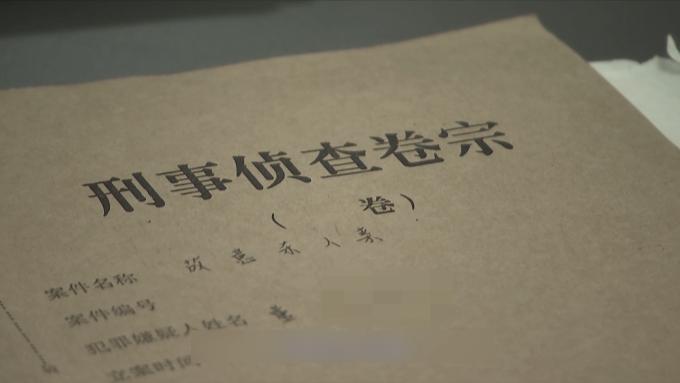 刑事侦查卷宗
( 卷)
案件名称 故意杀人案
案件编号
犯罪嫌疑人姓名 董
立案时间